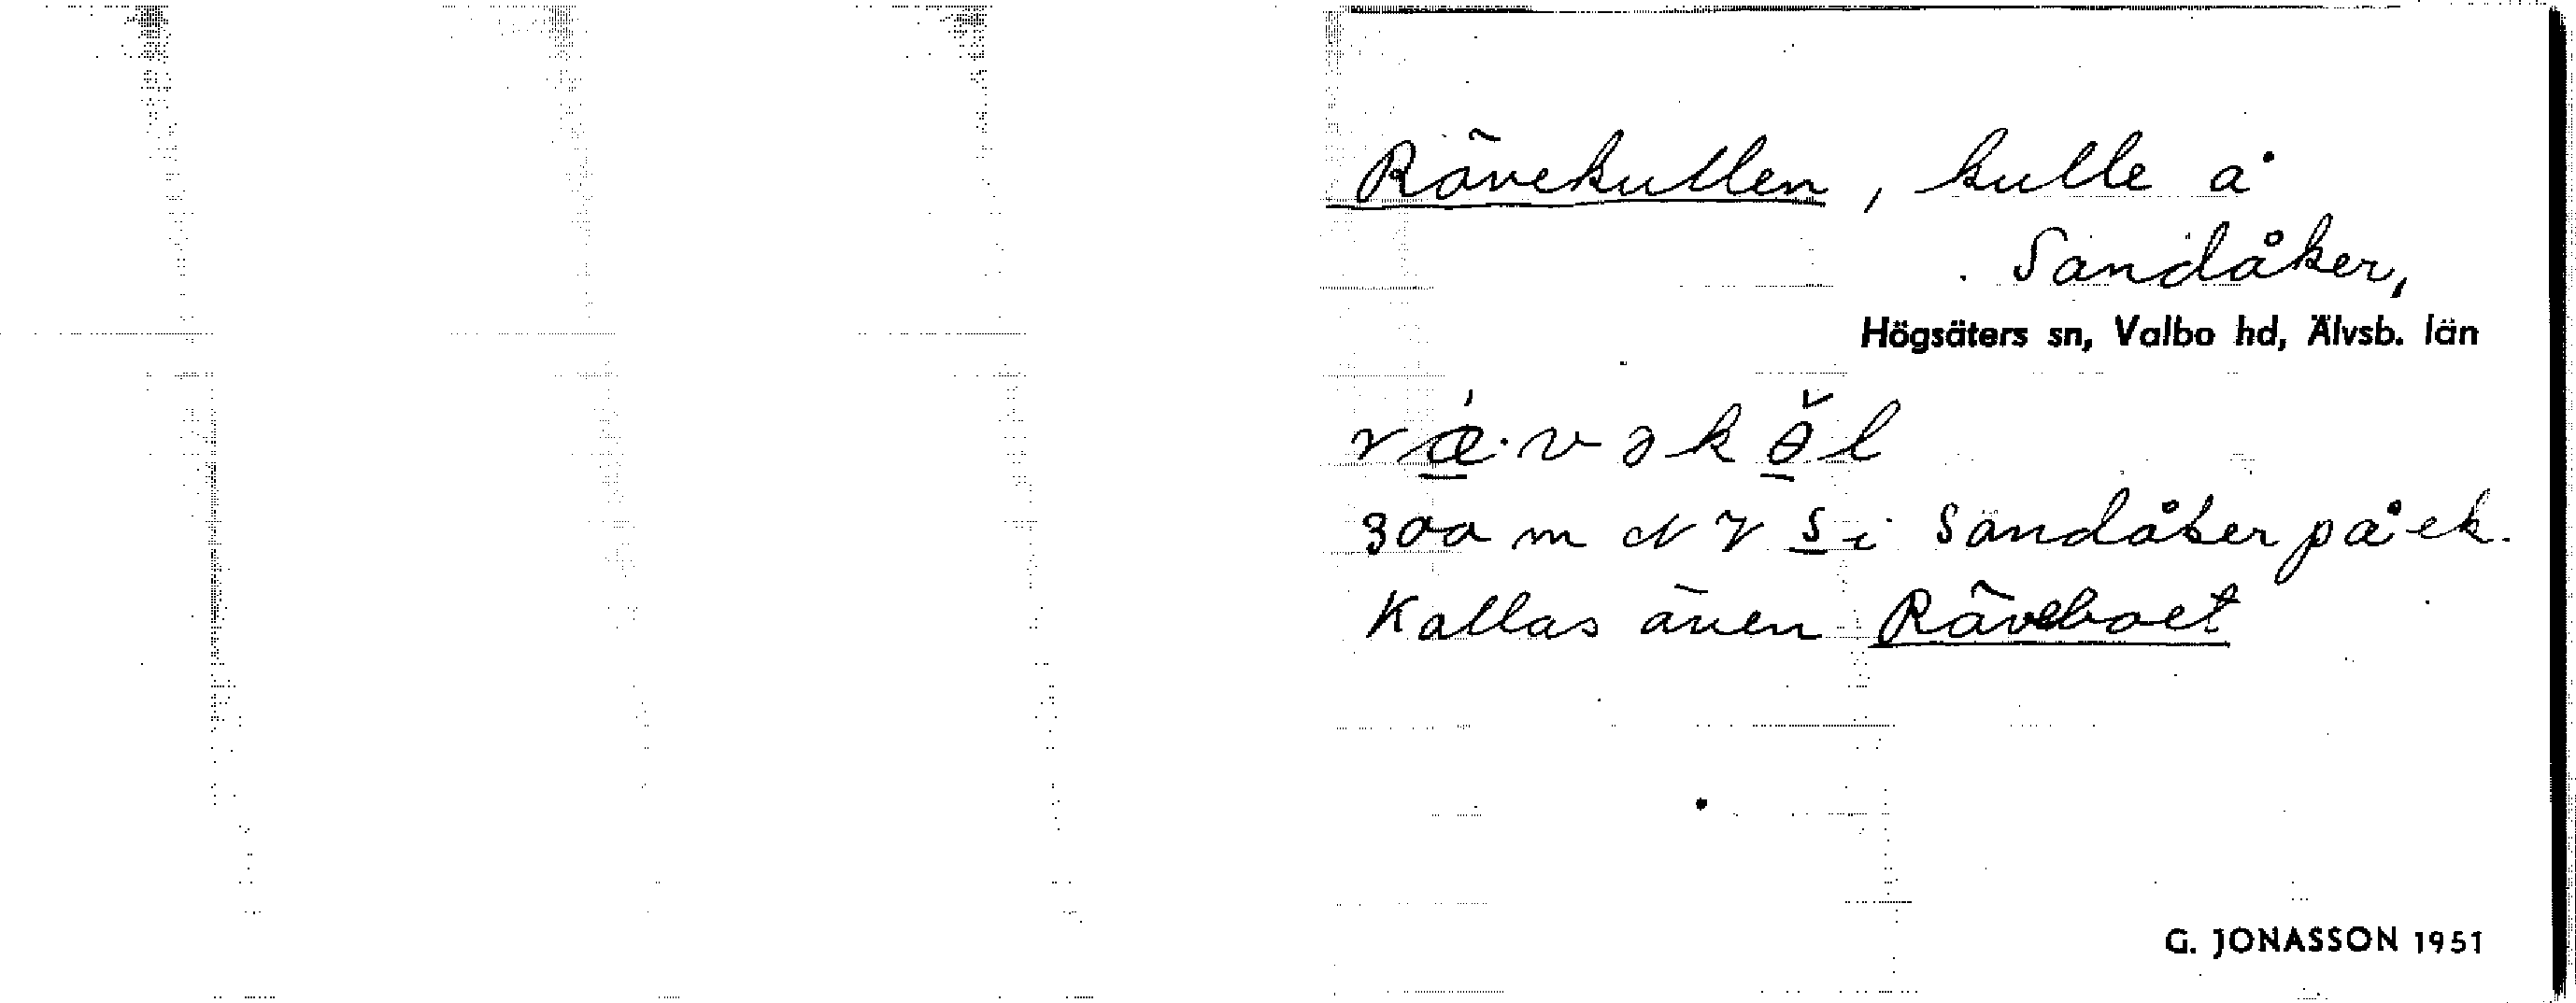 Rävekullen, kulle å
Sandåker,
Högsäters sn, Valbo hd, Älvsb. län
rǽ̲·vəkə̲̌l
300 m NV s̲ i Sandåker på ek.
Kallas även Räveboet
G. JONASSON 1951